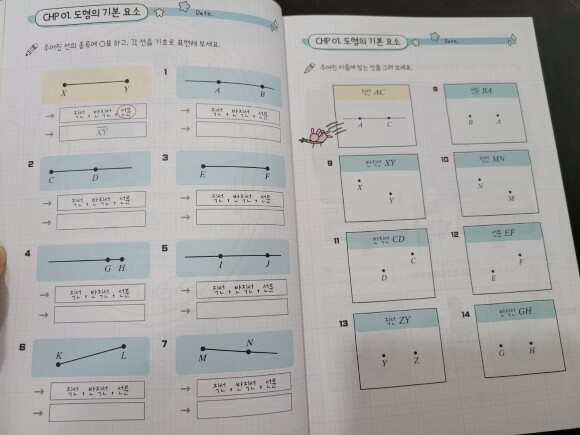 CHP 01. 도형의 기본 요소
Date.
주어진 선의 종류에 ○표 하고, 각 선을 기호로 표현해 보세요.
X Y
→ 직선 , 반직선 , 선분
→ XY
1
A B
→ 직선 , 반직선 , 선분
→
2
C D
→ 직선 , 반직선 , 선분
→
3
E F
→ 직선 , 반직선 , 선분
→
4
G H
→ 직선 , 반직선 , 선분
→
5
I J
→ 직선 , 반직선 , 선분
→
6
K L
→ 직선 , 반직선 , 선분
→
7
M N
→ 직선 , 반직선 , 선분
→
CHP 01. 도형의 기본 요소
Date.
주어진 이름에 맞는 선을 그려 보세요.
직선 AC
A C
8
선분 BA
B A
9
반직선 XY
X
Y
10
직선 MN
N
M
11
반직선 CD
C
D
12
선분 EF
F
E
13
직선 ZY
Y Z
14
반직선 GH
G H